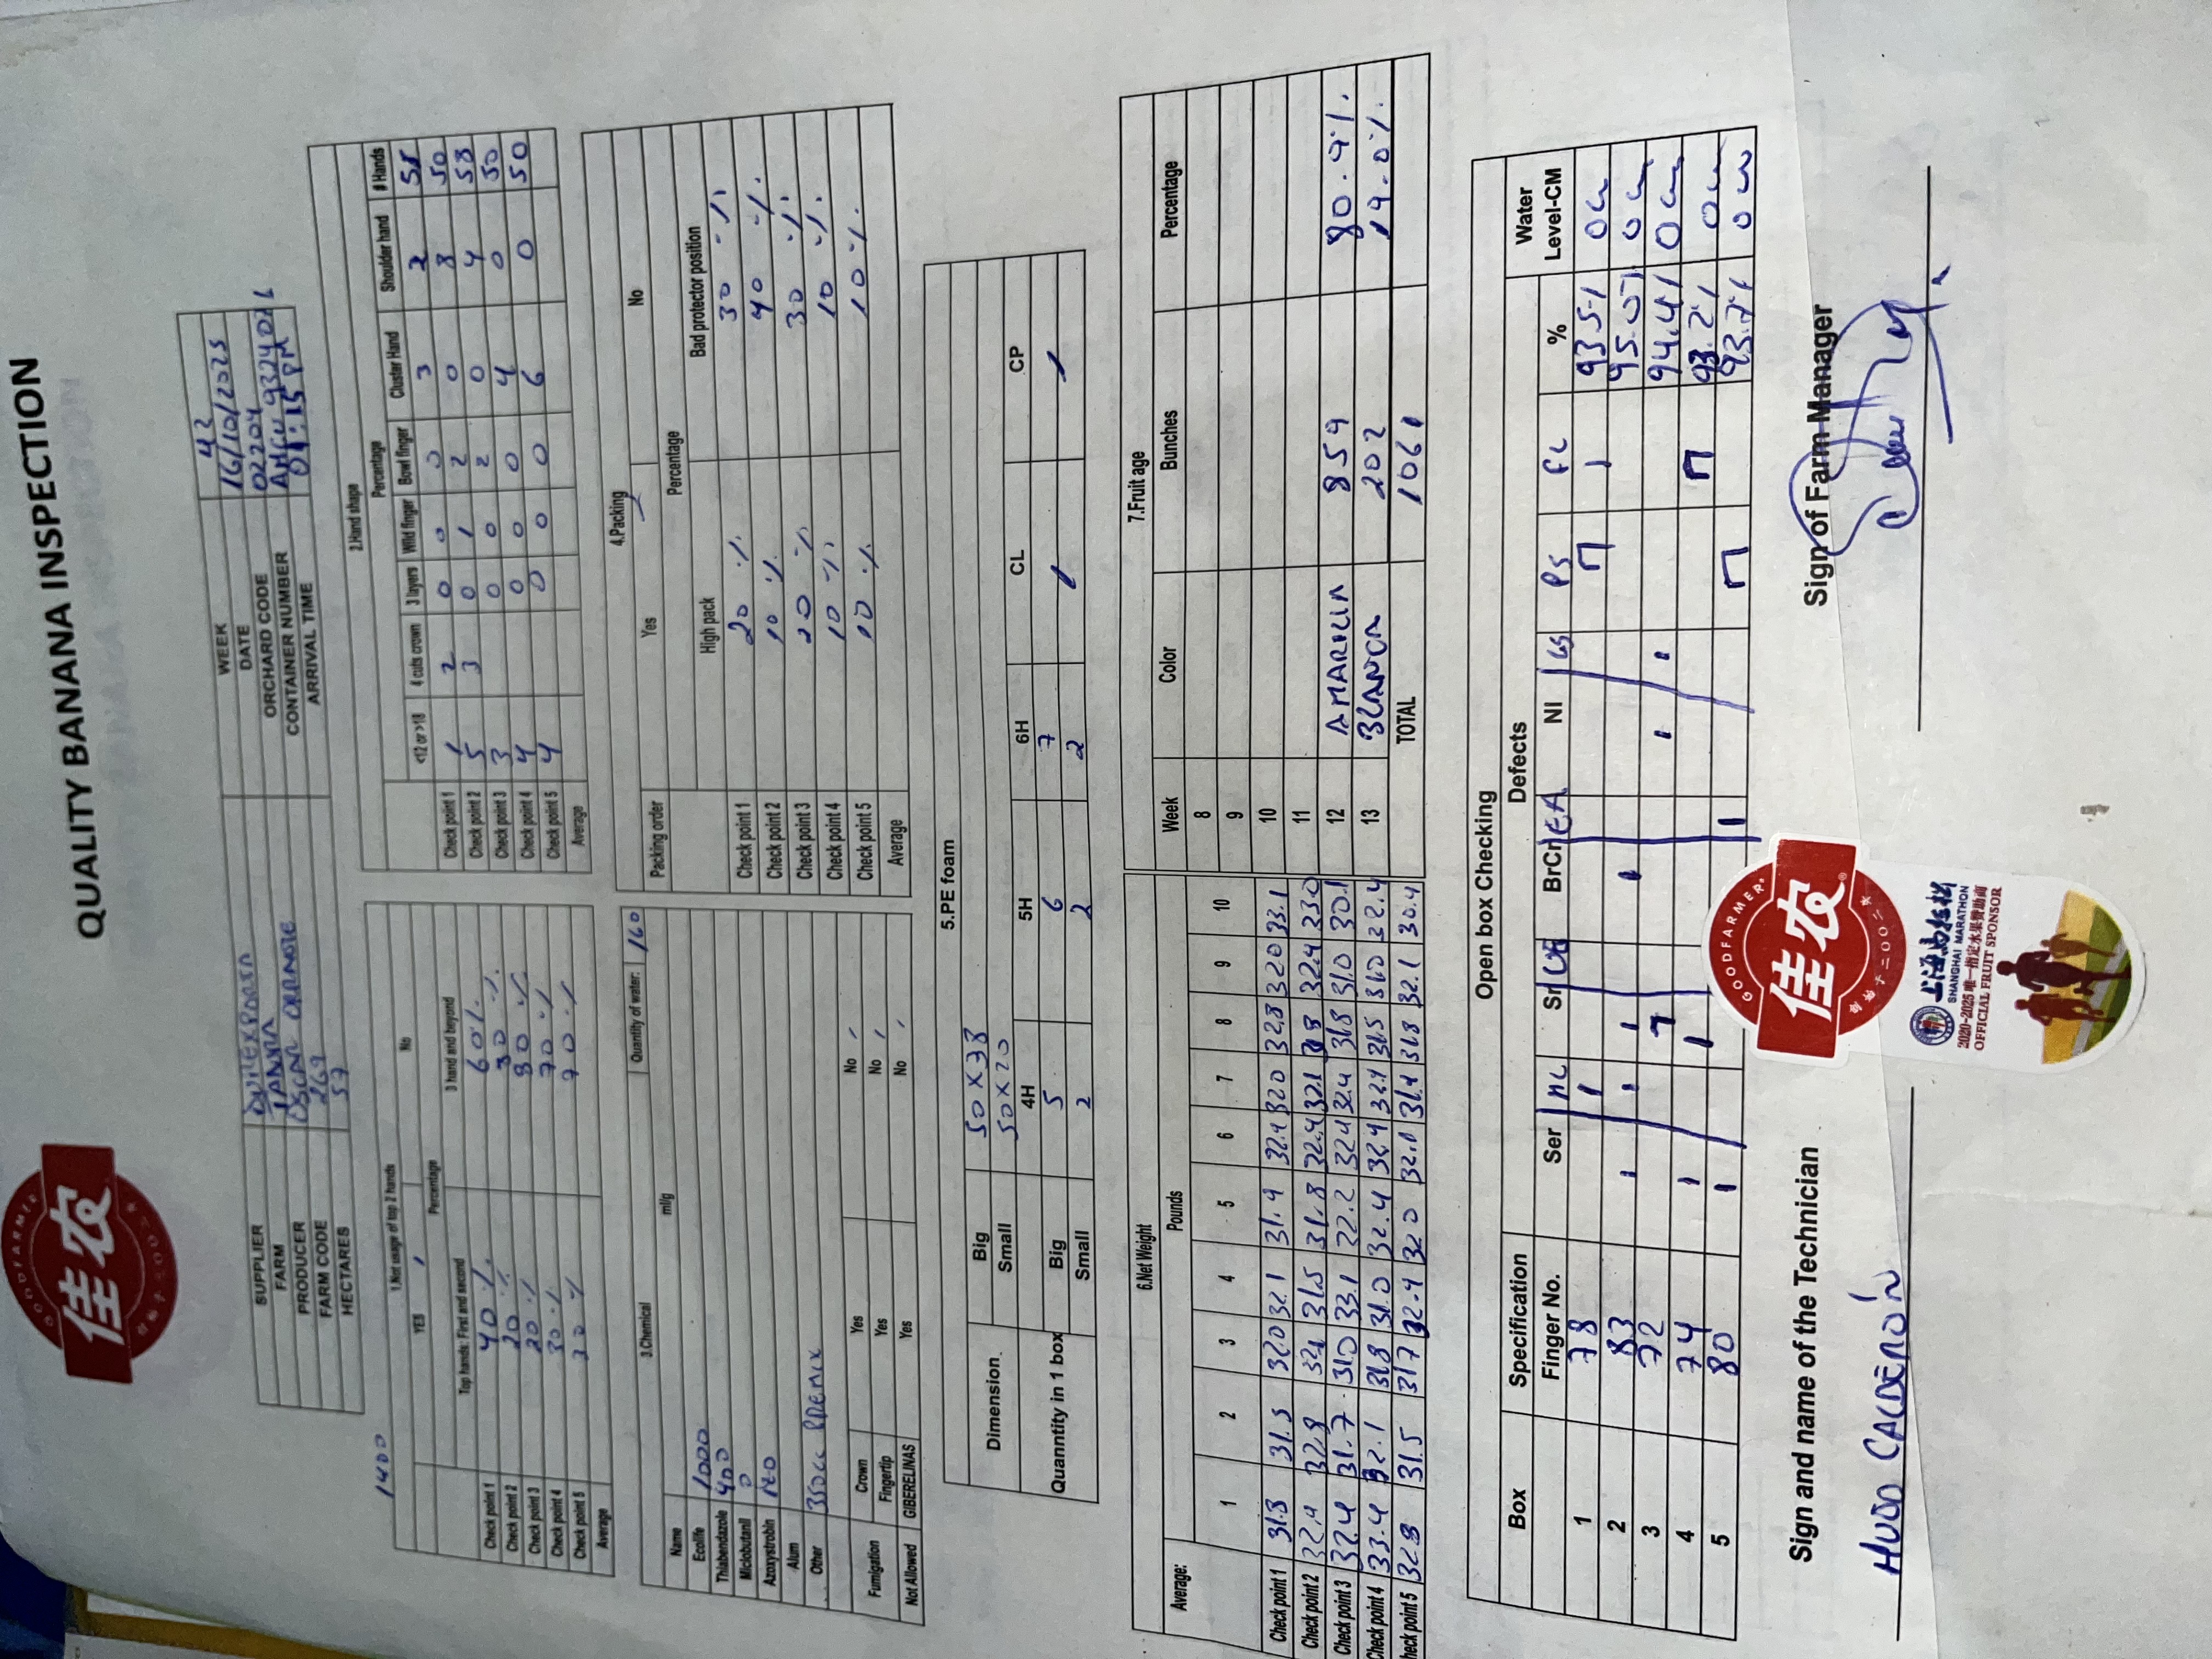 GOODFARMER
佳农
创始于二〇〇二年
QUALITY BANANA INSPECTION
SUPPLIER DUREXPORTA WEEK 42
FARM DATE 16/10/2025
PRODUCER OSCAR ORRANTE ORCHARD CODE 02204
FARM CODE 269 CONTAINER NUMBER AMCU 9324076
HECTARES 57 ARRIVAL TIME 01:15 PM
1400
1.Not usage of top 2 hands
YES / No
Percentage
Top hands: First and second 3 hand and beyond
Check point 1 40 % 60%
Check point 2 20 % 80 %
Check point 3 20 % 80 %
Check point 4 30 % 70 %
Check point 5 30 % 70 %
Average
2.Hand shape
Percentage
<12 or >18 4 cuts crown 3 layers Wild finger Bowl finger Cluster Hand Shoulder hand # Hands
Check point 1 1 2 0 0 0 3 2 55
Check point 2 5 3 0 1 2 0 8 50
Check point 3 3 0 0 2 0 4 58
Check point 4 4 0 0 0 4 0 50
Check point 5 4 0 0 0 6 0 50
Average
3.Chemical Quantity of water: 160
Name ml/g
Ecolife 1000
Thiabendazole 400
Miclobutanil 0
Azoxystrobin
Alum
Other 350cc PREMIX
Fumigation Crown Yes No /
Fingertip Yes No /
Not Allowed GIBERELINAS Yes No /
4.Packing
Packing order Yes / No
Percentage
High pack Bad protector position
Check point 1 20 % 30 %
Check point 2 10 % 40 %
Check point 3 20 % 30 %
Check point 4 10 % 10 %
Check point 5 10 % 10 %
Average
5.PE foam
Dimension Big 50X38
Small 50X20
4H 5H 6H CL CP
Quanntity in 1 box Big 5 6 7 / /
Small 2 2 2
6.Net Weight
Average: Pounds
1 2 3 4 5 6 7 8 9 10
Check point 1 31.8 31.5 32.0 32.1 31.9 32.4 32.0 32.8 32.0 33.1
Check point 2 32.4 32.8 32.1 31.5 31.8 32.4 32.1 31.8 32.4
Check point 3 32.4 31.7 31.0 33.1 32.2 32.4 32.4 31.8 31.0 30.1
Check point 4 33.4 32.1 31.8 31.0 32.4 32.4 32.4 31.5 31.0 32.4
Check point 5 32.8 31.5 31.7 32.4 32.0 32.1 31.4 31.8 32.1 30.4
7.Fruit age
Week Color Bunches Percentage
8
9
10
11
12 AMARILLA 859 80.9%.
13 BLANCA 202 19.0%.
TOTAL 1061
Open box Checking
Box Specification Defects Water
Finger No. Ser ML Sr UE BrCr EA NI GS PS FL % Level-CM
1 78 93.5% 0cm
2 83 95.0% 0cm
3 72 94.4% 0cm
4 74 93.2% 0cm
5 80 93.7% 0cm
Sign and name of the Technician
HUGO CALDERÓN
Sign of Farm Manager
GOODFARMER®
佳农®
创始于二〇〇二年
上海马拉松
SHANGHAI MARATHON
2020-2025 唯一指定水果赞助商
OFFICIAL FRUIT SPONSOR